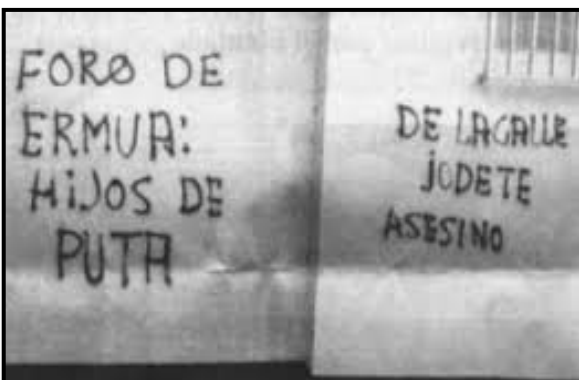 FORO DE
ERMUA:
HiJOS DE
PUTA
DE LACALLE
JODETE
ASESINO